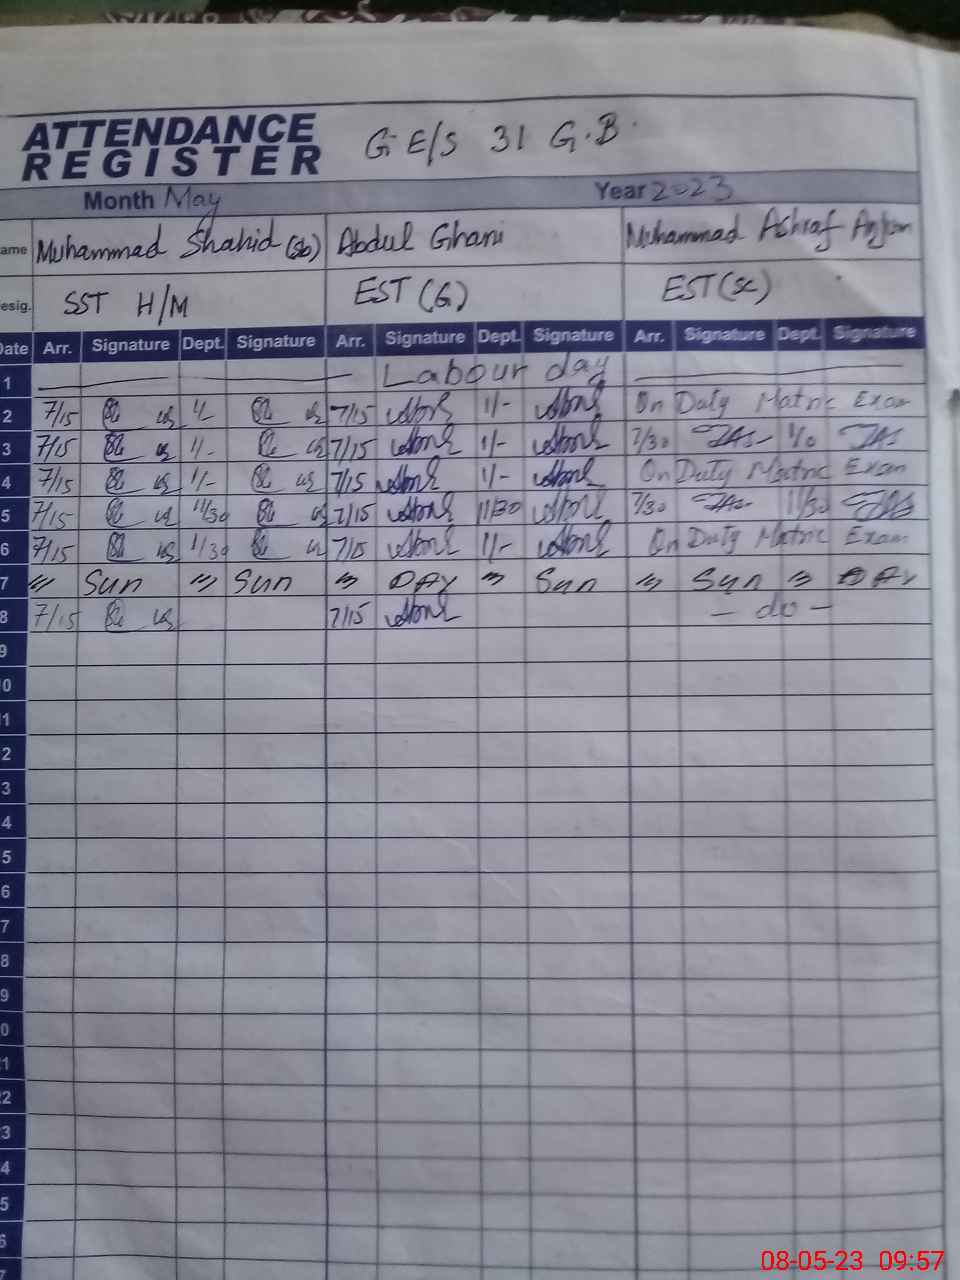 ATTENDANCE
REGISTER
G.E/S 31 G.B.
Month May Year 2023
ame Muhammad Shahid (sb) Abdul Ghani Muhammad Ashraf Anjum
esig. SST H/M EST (G) EST (SC)
Date Arr. Signature Dept. Signature Arr. Signature Dept. Signature Arr. Signature Dept. Signature
1 Labour day
2 7/15 7/15 1/- On Duty Matric Exam
3 7/15 1/- 7/15 1/- 7/30
4 7/15 1/- 7/15 1/- On Duty Matric Exam
5 7/15 11/30 7/15 11/30 7/30 11/30
6 7/15 1/30 7/15 1/- On Duty Matric Exam
7 " Sun " Sun " DAY " Sun " Sun " DAY
8 7/15 7/15 - do -
9
0
1
2
3
4
5
6
7
8
9
0
1
2
3
4
5
6
7
08-05-23 09:57